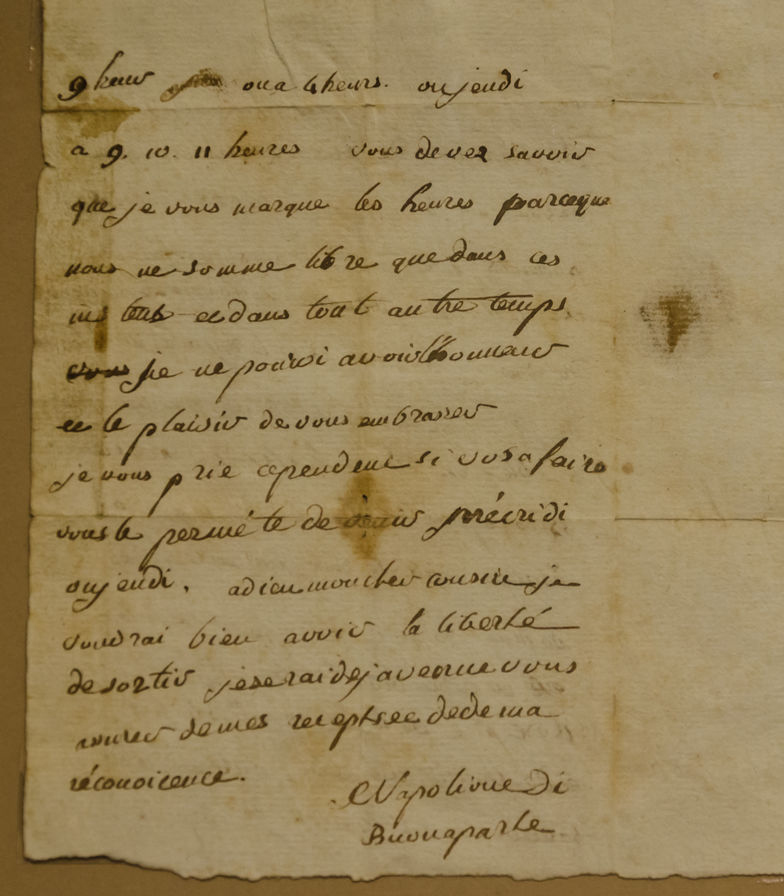 9 heur ou a 4 heurs. ou jeudi
a 9. 10. 11 heures vous devez savoir
que je vous marque les heures parceque
nous ne somme libre que dans ces
ins tens et dans tout autre temps
je ne pouroi avoir l'honneur
et le plaisir de vous embrasser
je vous prie cependent si vos afaire
vous le perméte de venir mécridi
ou jeudi. adieu mon cher cousin je
voudrai bien avoir la liberté
de sortir je serai dejavenue vous
assurer de mes respts et de de ma
réconoicence.
Napolione di
Buonaparte